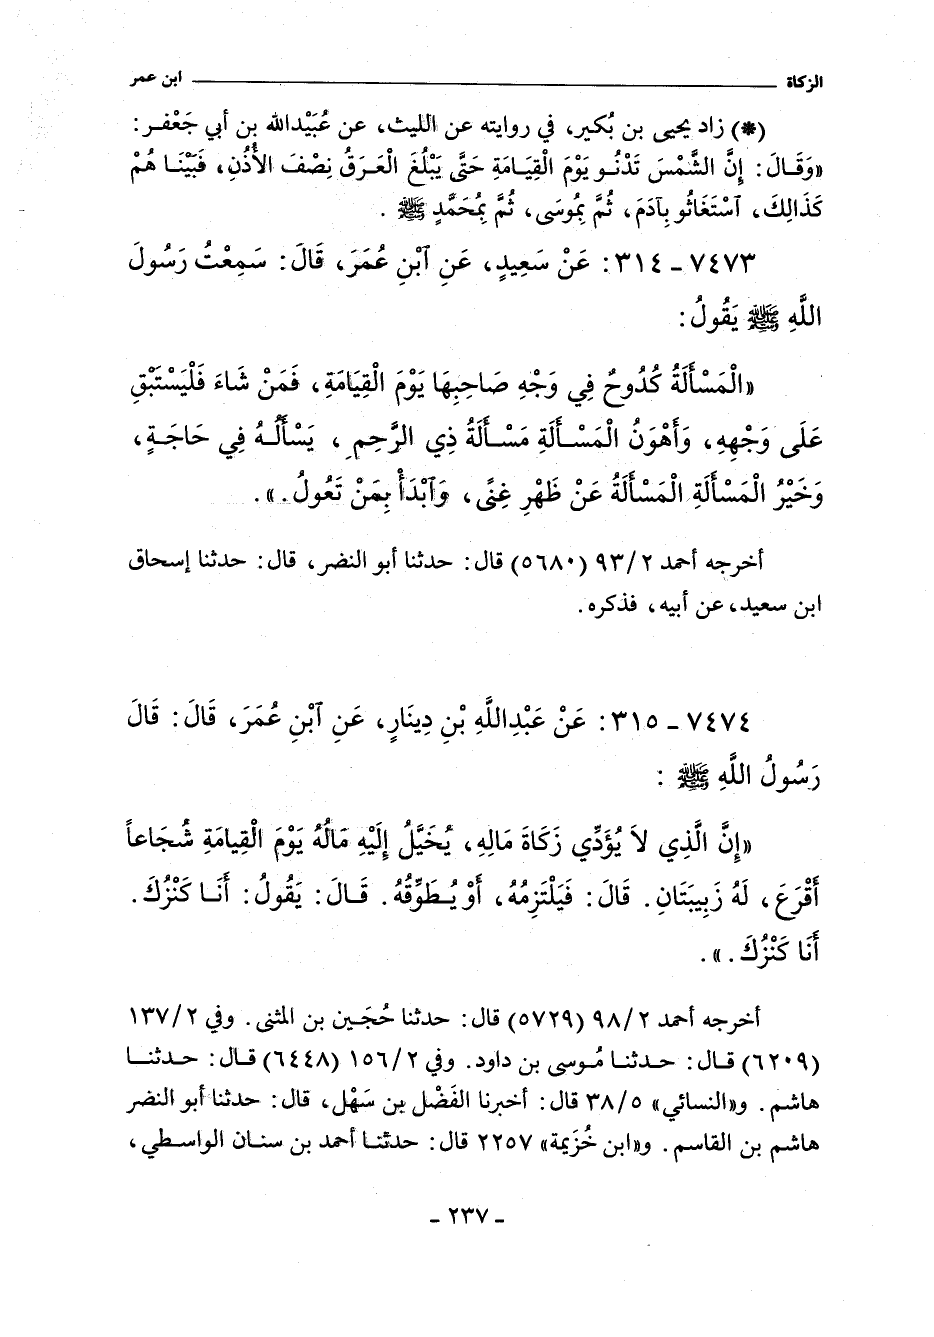 الزكاة ابن عمر
(*) زاد يحيى بن بُكير، في روايته عن الليث، عن عُبَيْدالله بن أبي جَعْفر:
«وَقَالَ: إِنَّ الشَّمْسَ تَدْنُو يَوْمَ الْقِيَامَةِ حَتَّى يَبْلُغَ الْعَرَقُ نِصْفَ الأُذُنِ، فَبَيْنَا هُمْ
كَذَالِكَ، ٱسْتَغَاثُو بِآدَمَ، ثُمَّ بِمُوسَى، ثُمَّ بِمُحَمَّدٍ ﷺ.
٧٤٧٣ - ٣١٤: عَنْ سَعِيدٍ، عَنِ ٱبْنِ عُمَرَ، قَالَ: سَمِعْتُ رَسُولَ
اللَّهِ ﷺ يَقُولُ:
«الْمَسْأَلَةُ كُدُوحٌ فِي وَجْهِ صَاحِبِهَا يَوْمَ الْقِيَامَةِ، فَمَنْ شَاءَ فَلْيَسْتَبْقِ
عَلَى وَجْهِهِ، وَأَهْوَنُ الْمَسْأَلَةِ مَسْأَلَةُ ذِي الرَّحِمِ، يَسْأَلُهُ فِي حَاجَةٍ،
وَخَيْرُ الْمَسْأَلَةِ الْمَسْأَلَةُ عَنْ ظَهْرِ غِنًى، وَٱبْدَأْ بِمَنْ تَعُولُ.».
أخرجه أحمد ٢/٩٣ (٥٦٨٠) قال: حدثنا أبو النضر، قال: حدثنا إسحاق
ابن سعيد، عن أبيه، فذكره.
٧٤٧٤ - ٣١٥: عَنْ عَبْدِاللَّهِ بْنِ دِينَارٍ، عَنِ ٱبْنِ عُمَرَ، قَالَ: قَالَ
رَسُولُ اللَّهِ ﷺ:
«إِنَّ الَّذِي لاَ يُؤَدِّي زَكَاةَ مَالِهِ، يُخَيَّلُ إِلَيْهِ مَالُهُ يَوْمَ الْقِيامَةِ شُجَاعاً
أَقْرَعَ، لَهُ زَبِيبَتَانِ. قَالَ: فَيَلْتَزِمُهُ، أَوْ يُطَوِّقُهُ. قَالَ: يَقُولُ: أَنَا كَنْزُكَ.
أَنَا كَنْزُكَ.».
أخرجه أحمد ٢/٩٨ (٥٧٢٩) قال: حدثنا حُجَين بن المثنى. وفي ٢/١٣٧
(٦٢٠٩) قال: حدثنا مُوسى بن داود. وفي ٢/١٥٦ (٦٤٤٨) قال: حدثنا
هاشم. و«النسائي» ٥/٣٨ قال: أخبرنا الفَضْل بن سَهْل، قال: حدثنا أبو النضر
هاشم بن القاسم. و«ابن خُزَيمة» ٢٢٥٧ قال: حدثنا أحمد بن سنان الواسطي،
- ٢٣٧ -